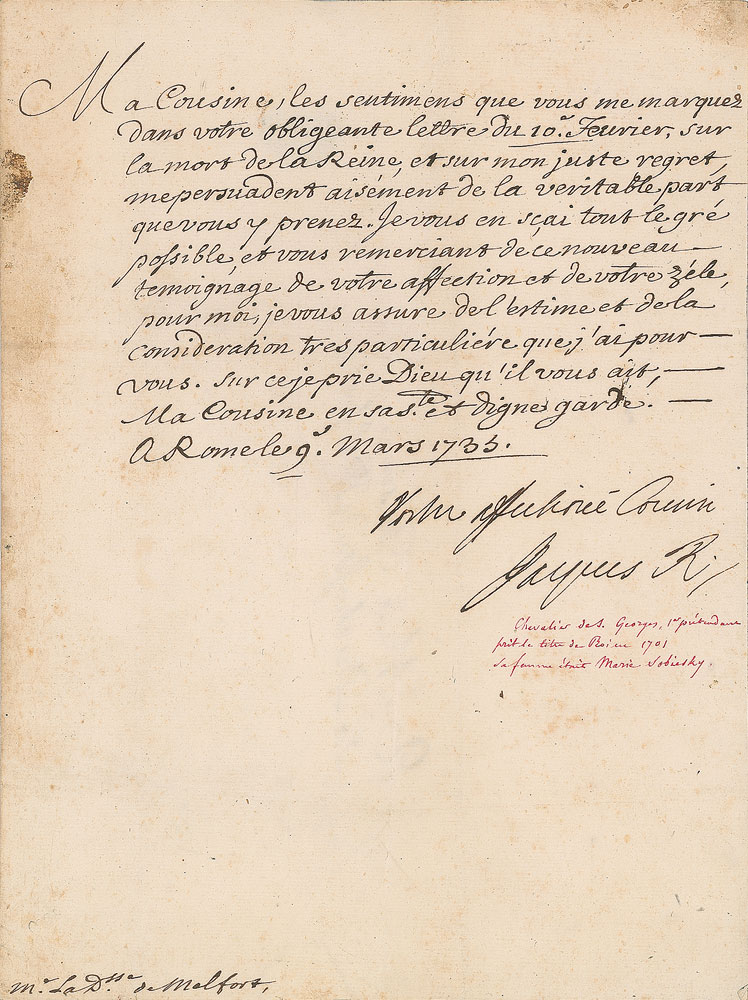 Ma Cousine, les sentimens que vous me marquez
dans votre obligeante lettre du 10.e Feurier, sur
la mort de la Reine, et sur mon juste regret,
me persuadent aisément de la veritable part
que vous y prenez. Je vous en sçai tout le gré
possible, et vous remerciant de ce nouveau
temoignage de votre affection et de votre zéle,
pour moi, je vous assure de l'estime et de la
consideration tres particuliére que j'ai pour
vous. Sur ce je prie Dieu qu'il vous ait,
Ma Cousine en sa s.te et digne garde.
A Rome le 9.e Mars 1735.
Vostre affectioné Cousin
Jacques R.
Chevalier de S. Georges, 1er prétendant
prit le titre de Roi en 1701
Sa femme était Marie Sobiesky.
M.e La D.sse de Melfort,